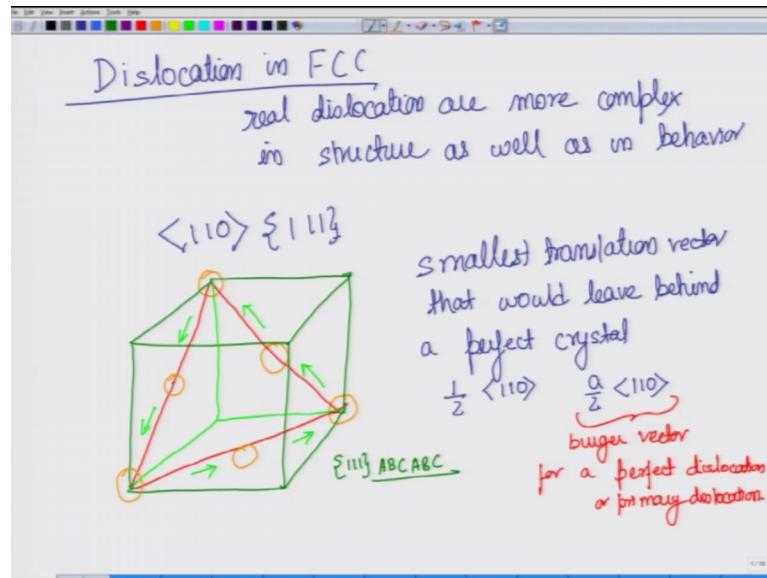 Dislocation in FCC
real dislocation are more complex
in structure as well as in behavior
<110> {111}
smallest translation vector
that would leave behind
a perfect crystal
1/2 <110> a/2 <110>
burger vector
for a perfect dislocation
or primary dislocation
{111} ABCABC